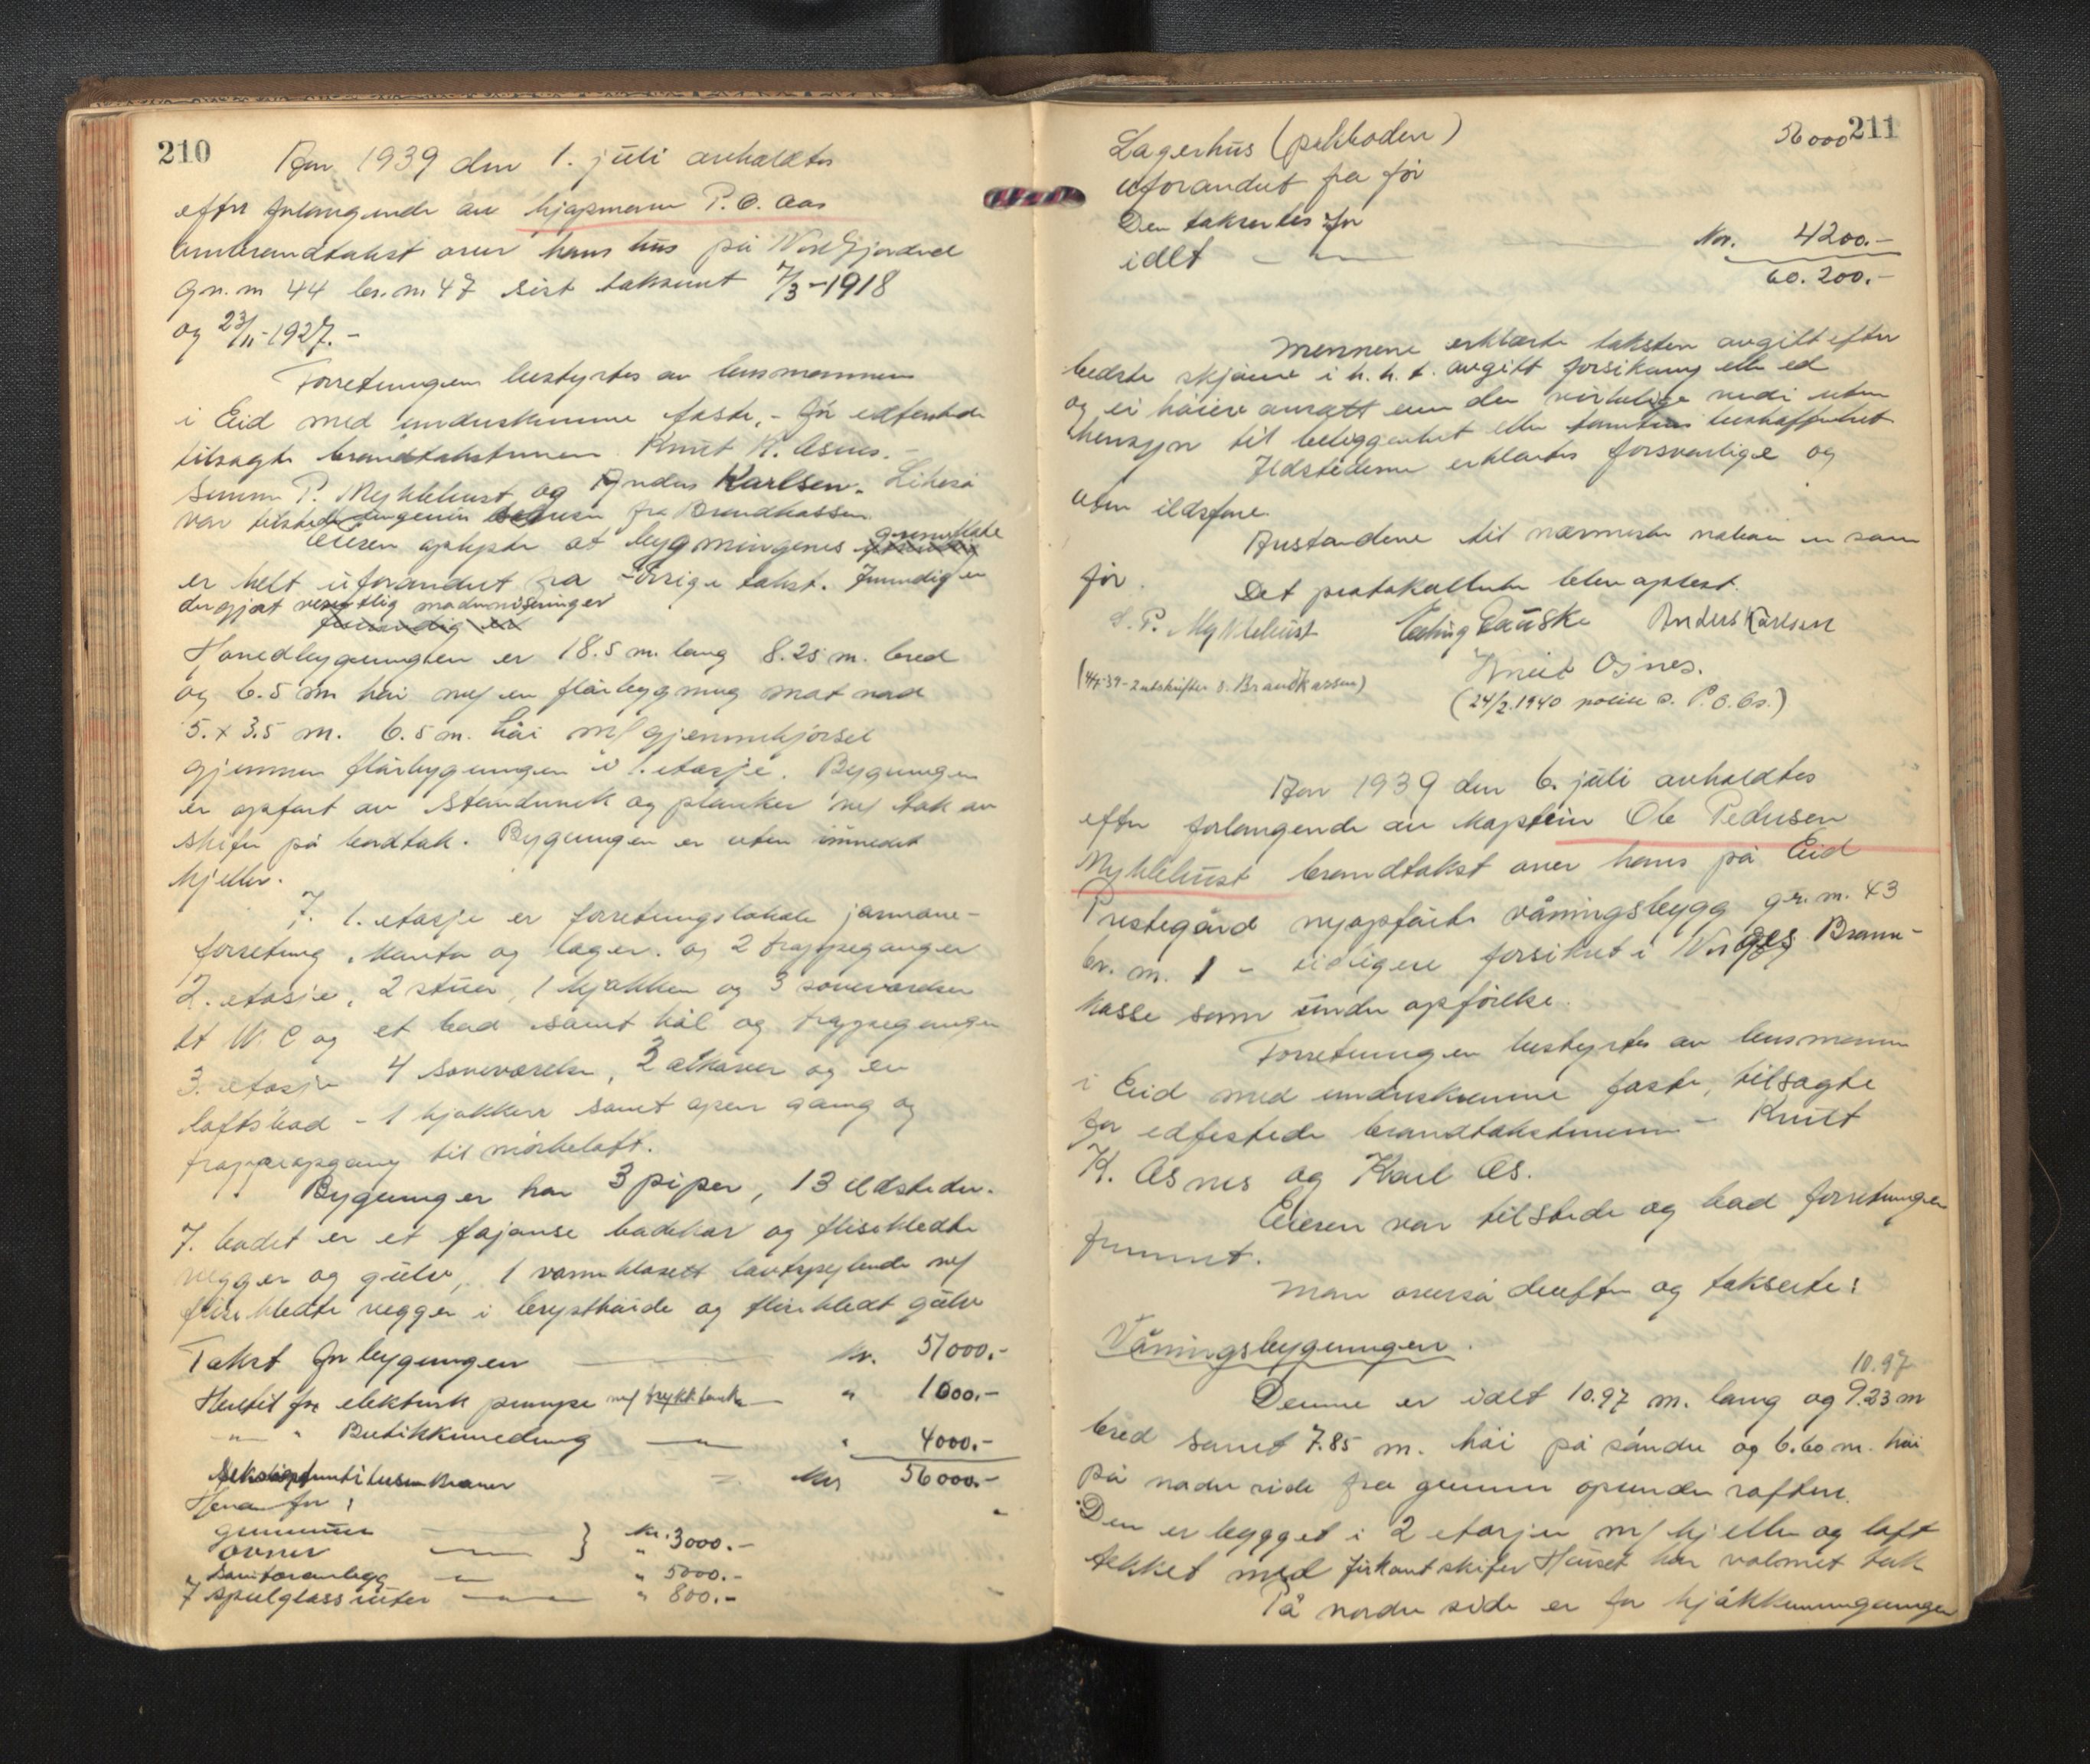 210
Aar 1939 den 1. juli avholdtes
efter forlangende av kjøpmann P. O. Aas
ombrandtakst over hans hus på Nordfjordeid
gn. nr 44 br. nr 47 sist taksert 7/3-1918
og 23/11-1927.-
Forretningen bestyrtes av lensmannen
i Eid med underskrevne faste, - før edfestede
tilsagte brandtakstmenn Knut K. Osnes.-
Simon P. Myklebust og Anders Karlsen. Likeså
var tilstede fra Brandkassen
Eieren oplyste at bygningenes grunnflate
er helt uforandret fra forrige takst. Innvendig er
der gjort vesentlig moderniseringer
Hovedbygningen er 18.5 m. lang 8.25 m. bred
og 6.5 m høi m/ en fløibygning mot nord
5. x 3.5 m. 6.5 m. høi m/ gjennemkjørsel
gjennem fløibygningen i 1. etasje. Bygningen
er opført av stenderverk og planker m/ tak av
skifer på bordtak. Bygningen er uten innredet
kjeller.
I 1. etasje er forretningslokale jernvare-
forretning, kontor og lager. og 2 trappeganger
2. etasje, 2 stuer, 1 kjøkken og 3 soveværelser
et W. C og et bad samt hal og trappeganger
3. etasje 4 soveværelser, 2 alkover og en
loftsbod - 1 kjøkken samt åpen gang og
trappeopgang til mørkeloft.
Bygningen har 3 piper, 13 ildsteder.
I badet er et fajanse badekar og flisekledte
vegger og gulv, 1 vannklosett lavtspylende m/
flisekledte vegger i brysthøide og flisekledt gulv
Takst for bygningen kr. 51000.-
Hertil for elektrisk pumpe m/ trykktank " 1000.-
" " Butikkinnredning " 4000.-
femtisekstusen kroner kr 56000.-
Herav for:
grunnmur
ovner } kr. 3000.-
" Sanitæranlegg " 5000.-
7 speilglassruter " 800.-
211
56000
Lagerhus (pakkboden)
uforandret fra før
Den takseres for kr. 4200.-
idlt 60.200.-
Mennene erklærte taksten avgitt efter
bedste skjønn i h. h. t. avgitt forsikring eller ed
og ei høiere ansatt enn den virkelige verdi uten
hensyn til beliggenhet eller tomtens beskaffenhet
Ildstedene erklærtes forsvarlige og
uten ildsfare.
Avstandene til nærmeste naboer er som
før.
Det protokollerte blev oplest.
S. P. Myklebust Erling Gauske Anders Karlsen
Knut Osnes.
(4/7-39 - 2 utskrifter s. Brandkassen)
(24/2.1940 s. P. O. Aas.)
Aar 1939 den 6. juli avholdtes
efter forlangende av kaptein Ole Pedersen
Myklebust brandtakst over hans på Eid
Prestegård nyopførte våningsbygg gr. nr. 43
br. nr. 1 - tidligere forsikret i Norges Brann-
kasse som under opførelse.
Forretningen bestyrtes av lensmannen
i Eid med underskrevne faste, tilsagte
før edfestede brandtakstmenn - Knut
K. Osnes og Karl Os.
Eieren var tilstede og bad forretningen
fremmet.
Man overså derefter og takserte:
Våningsbygningen.
10.97
Denne er idlt 10.97 m. lang og 9.23 m
bred samt 7.85 m. høi på søndre og 6.60 m. høi
på nordre side fra grunnen opunder raften.
Den er bygget i 2 etasjer m/ kjeller og loft
tekket med firkantskifer Huset har valmet tak
På nordre side er for kjøkkeninngangen